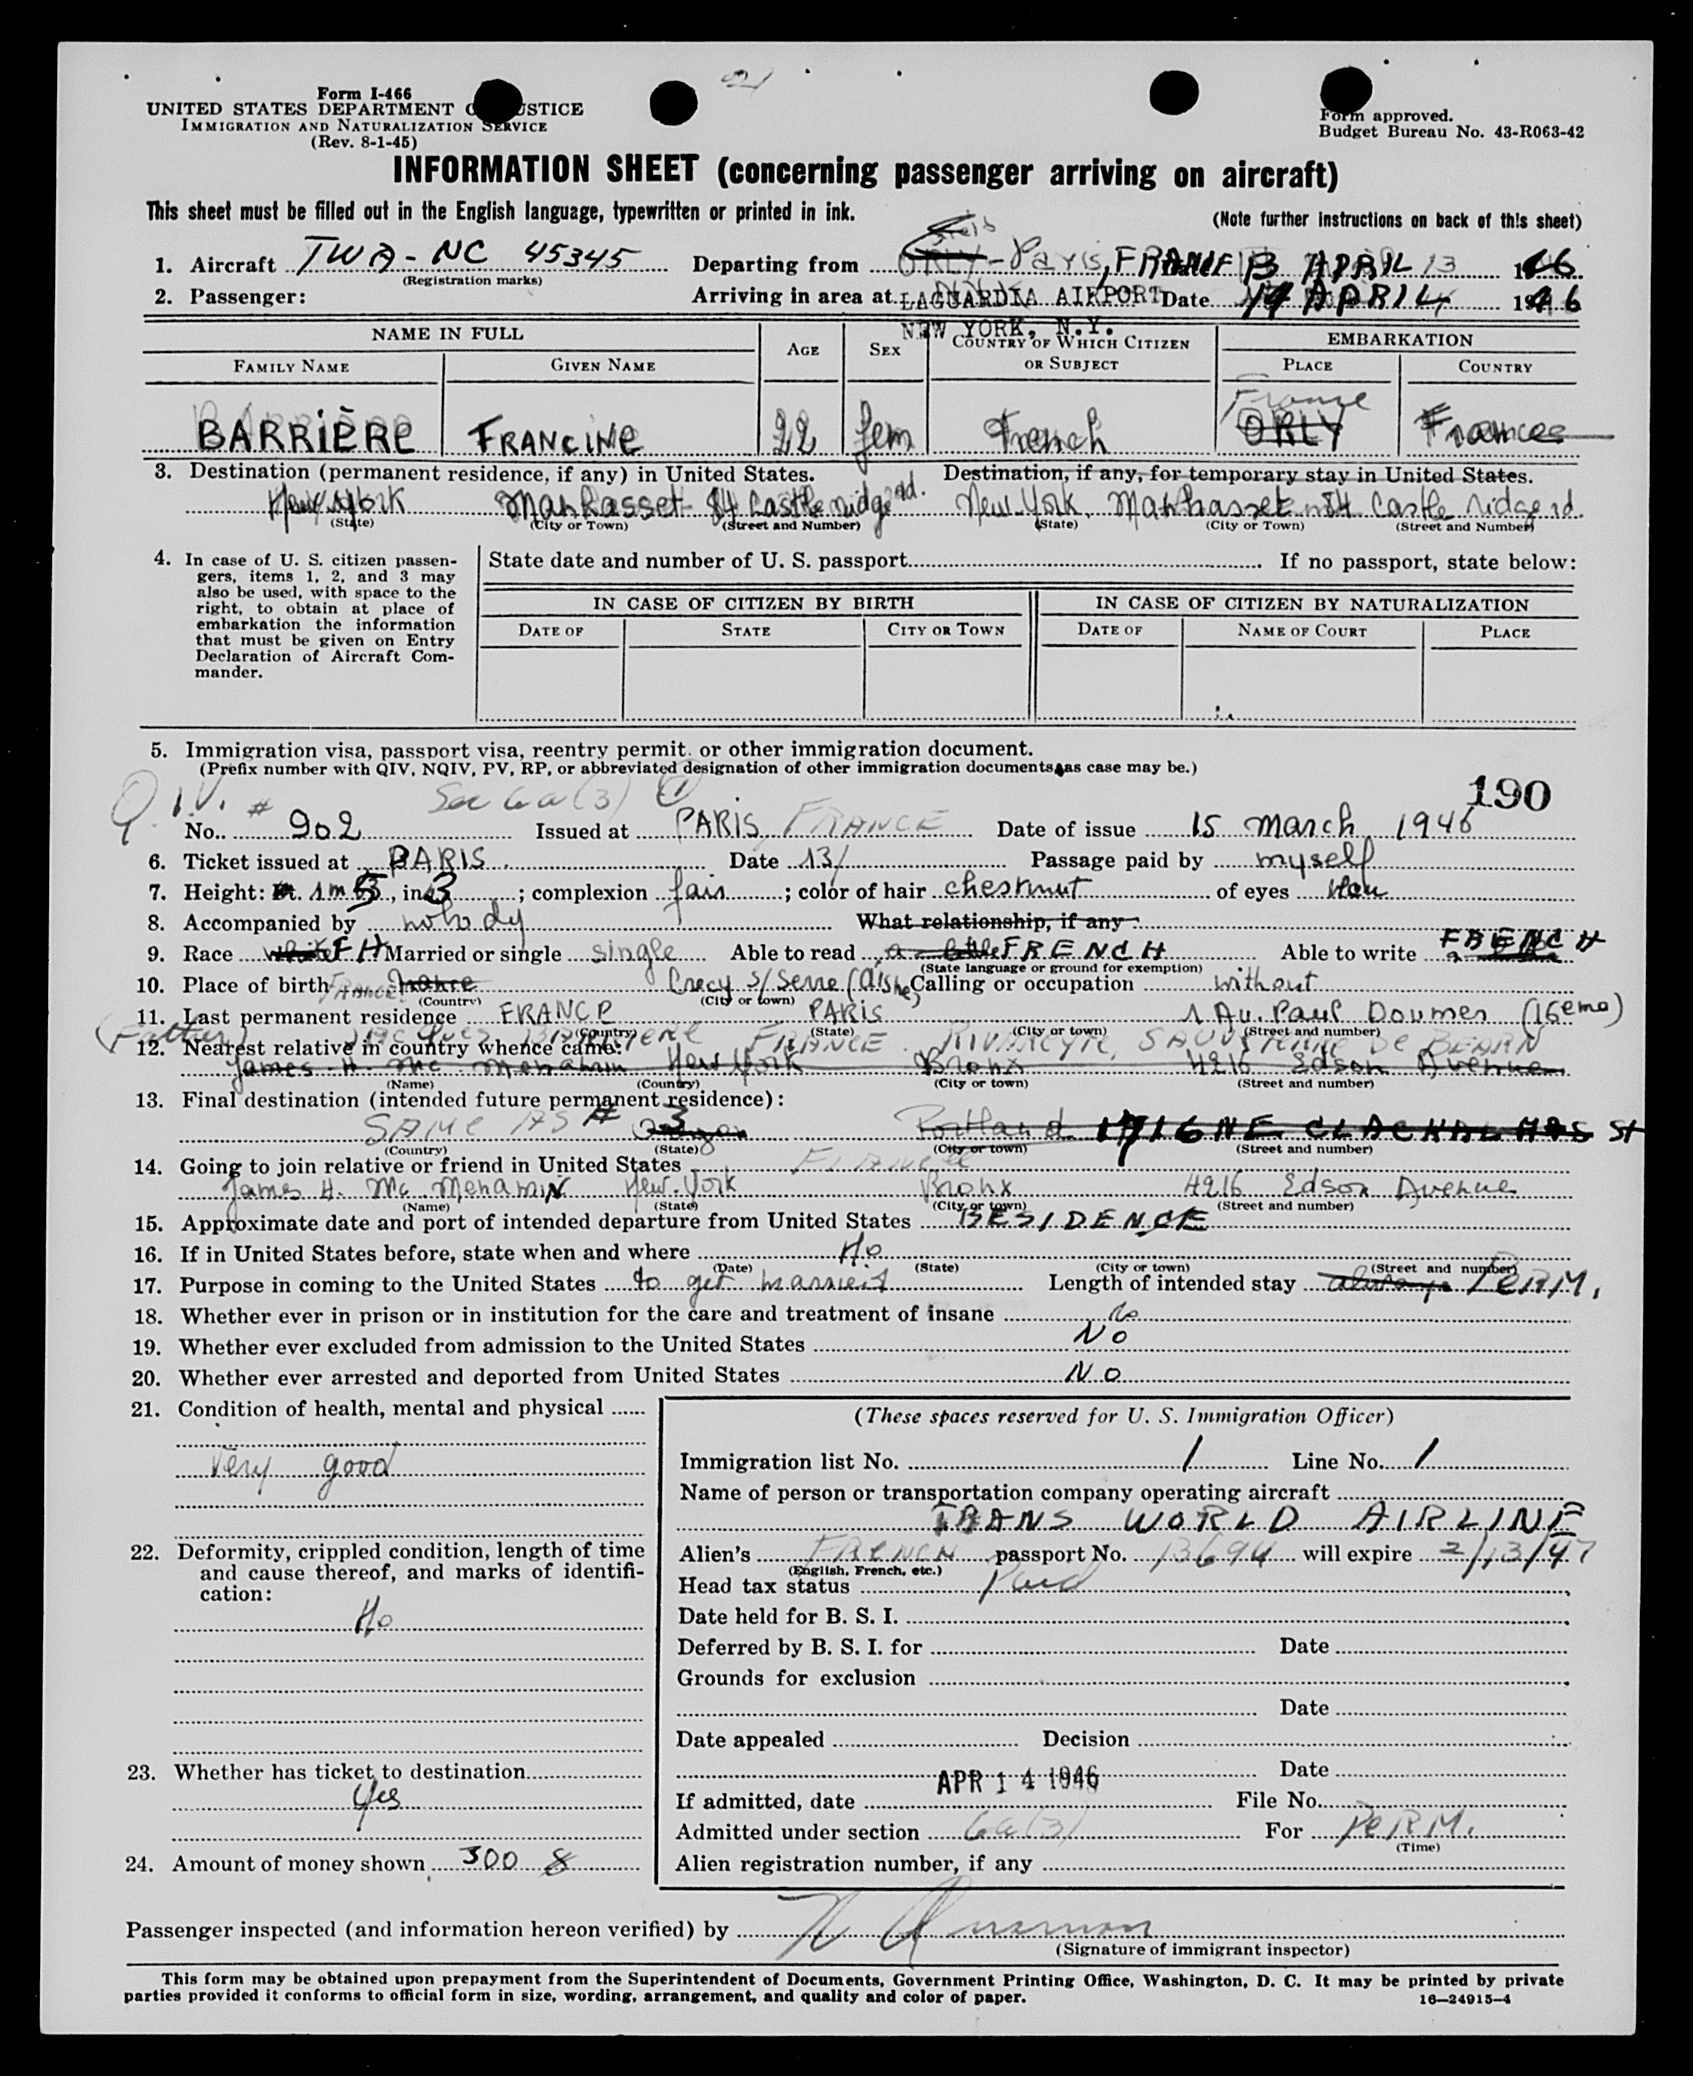 Form I-466
UNITED STATES DEPARTMENT OF JUSTICE
IMMIGRATION AND NATURALIZATION SERVICE
(Rev. 8-1-45)
Form approved.
Budget Bureau No. 43-R063-42
INFORMATION SHEET (concerning passenger arriving on aircraft)
This sheet must be filled out in the English language, typewritten or printed in ink.
(Note further instructions on back of this sheet)
1. Aircraft TWA - NC 45345 Departing from ORLY - Paris, FRANCE 13 APRIL 13 1946
(Registration marks)
2. Passenger: Arriving in area at LAGUARDIA AIRPORT Date 14 APRIL 1946
NEW YORK, N.Y.
NAME IN FULL AGE SEX COUNTRY OF WHICH CITIZEN OR SUBJECT EMBARKATION
FAMILY NAME GIVEN NAME PLACE COUNTRY
France
BARRIÈRE FRANCINE 22 fem French ORLY France
3. Destination (permanent residence, if any) in United States. Destination, if any, for temporary stay in United States.
New York Manhasset 84 Castle ridge rd. New York Manhasset 84 Castle ridge rd.
(State) (City or Town) (Street and Number) (State) (City or Town) (Street and Number)
4. In case of U. S. citizen passengers, items 1, 2, and 3 may also be used, with space to the right, to obtain at place of embarkation the information that must be given on Entry Declaration of Aircraft Commander.
State date and number of U. S. passport If no passport, state below:
IN CASE OF CITIZEN BY BIRTH IN CASE OF CITIZEN BY NATURALIZATION
DATE OF STATE CITY OR TOWN DATE OF NAME OF COURT PLACE
5. Immigration visa, passport visa, reentry permit, or other immigration document.
(Prefix number with QIV, NQIV, PV, RP, or abbreviated designation of other immigration documents, as case may be.)
190
Q.I.V. # Sec 6a(3)
No. 902 Issued at PARIS FRANCE Date of issue 15 march 1946
6. Ticket issued at PARIS. Date 13/ Passage paid by myself
7. Height: ft. 1m 5, in. 3; complexion fair; color of hair chestnut of eyes
8. Accompanied by nobody What relationship, if any
9. Race white FH Married or single single Able to read a little FRENCH Able to write FRENCH
(State language or ground for exemption)
10. Place of birth FRANCE France Crecy s/ Serre (Aisne) Calling or occupation without
(Country) (City or town)
11. Last permanent residence FRANCE PARIS 1 Av. Paul Doumer (16eme)
(Country) (State) (City or town) (Street and number)
(Father) JACQUES BARRIERE FRANCE SAUVETERRE DE BEARN
12. Nearest relative in country whence came:
James H. Mc Menamin New York Bronx 4216 Edson Avenue
(Name) (Country) (City or town) (Street and number)
13. Final destination (intended future permanent residence):
SAME AS # 3 Oregon Portland 1716 NE CLACKAMAS St
(Country) (State) (City or town) (Street and number)
14. Going to join relative or friend in United States FIANCÉ
James H. Mc Menamin New-York Bronx 4216 Edson Avenue
(Name) (State) (City or town) (Street and number)
15. Approximate date and port of intended departure from United States RESIDENCE
16. If in United States before, state when and where No
(Date) (State) (City or town) (Street and number)
17. Purpose in coming to the United States to get married Length of intended stay always PERM.
18. Whether ever in prison or in institution for the care and treatment of insane No
19. Whether ever excluded from admission to the United States No
20. Whether ever arrested and deported from United States No
21. Condition of health, mental and physical
Very good
22. Deformity, crippled condition, length of time and cause thereof, and marks of identification:
No
23. Whether has ticket to destination
Yes
24. Amount of money shown 300 $
(These spaces reserved for U. S. Immigration Officer)
Immigration list No. 1 Line No. 1
Name of person or transportation company operating aircraft
TRANS WORLD AIRLINE
Alien's FRENCH passport No. 13694 will expire 2/13/47
(English, French, etc.)
Head tax status Paid
Date held for B. S. I.
Deferred by B. S. I. for Date
Grounds for exclusion
Date
Date appealed Decision
Date
If admitted, date APR 14 1946 File No.
Admitted under section 6a(3) For PERM.
(Time)
Alien registration number, if any
Passenger inspected (and information hereon verified) by
(Signature of immigrant inspector)
This form may be obtained upon prepayment from the Superintendent of Documents, Government Printing Office, Washington, D. C. It may be printed by private
parties provided it conforms to official form in size, wording, arrangement, and quality and color of paper.
16—24915-4